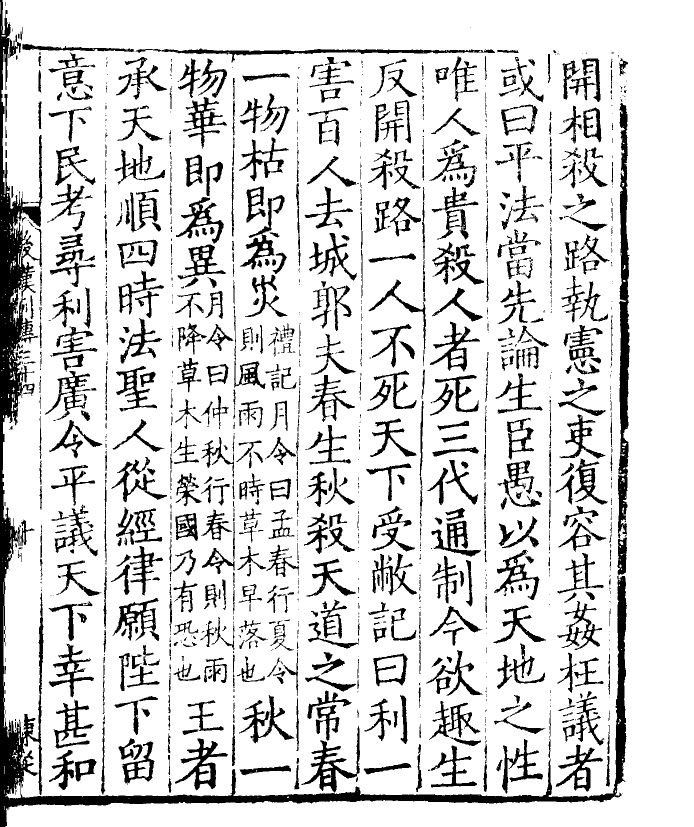 開相殺之路執憲之吏復容其姦枉議者
或曰平法當先論生臣愚以爲天地之性
唯人爲貴殺人者死三代通制今欲趣生
反開殺路一人不死天下受敝記曰利一
害百人去城郭夫春生秋殺天道之常春
一物枯即爲災禮記月令曰孟春行夏令則風雨不時草木早落也秋一
物華即爲異月令曰仲秋行春令則秋雨不降草木生榮國乃有恐也王者
承天地順四時法聖人從經律願陛下留
意下民考尋利害廣令平議天下幸甚和
後漢列傳三十四